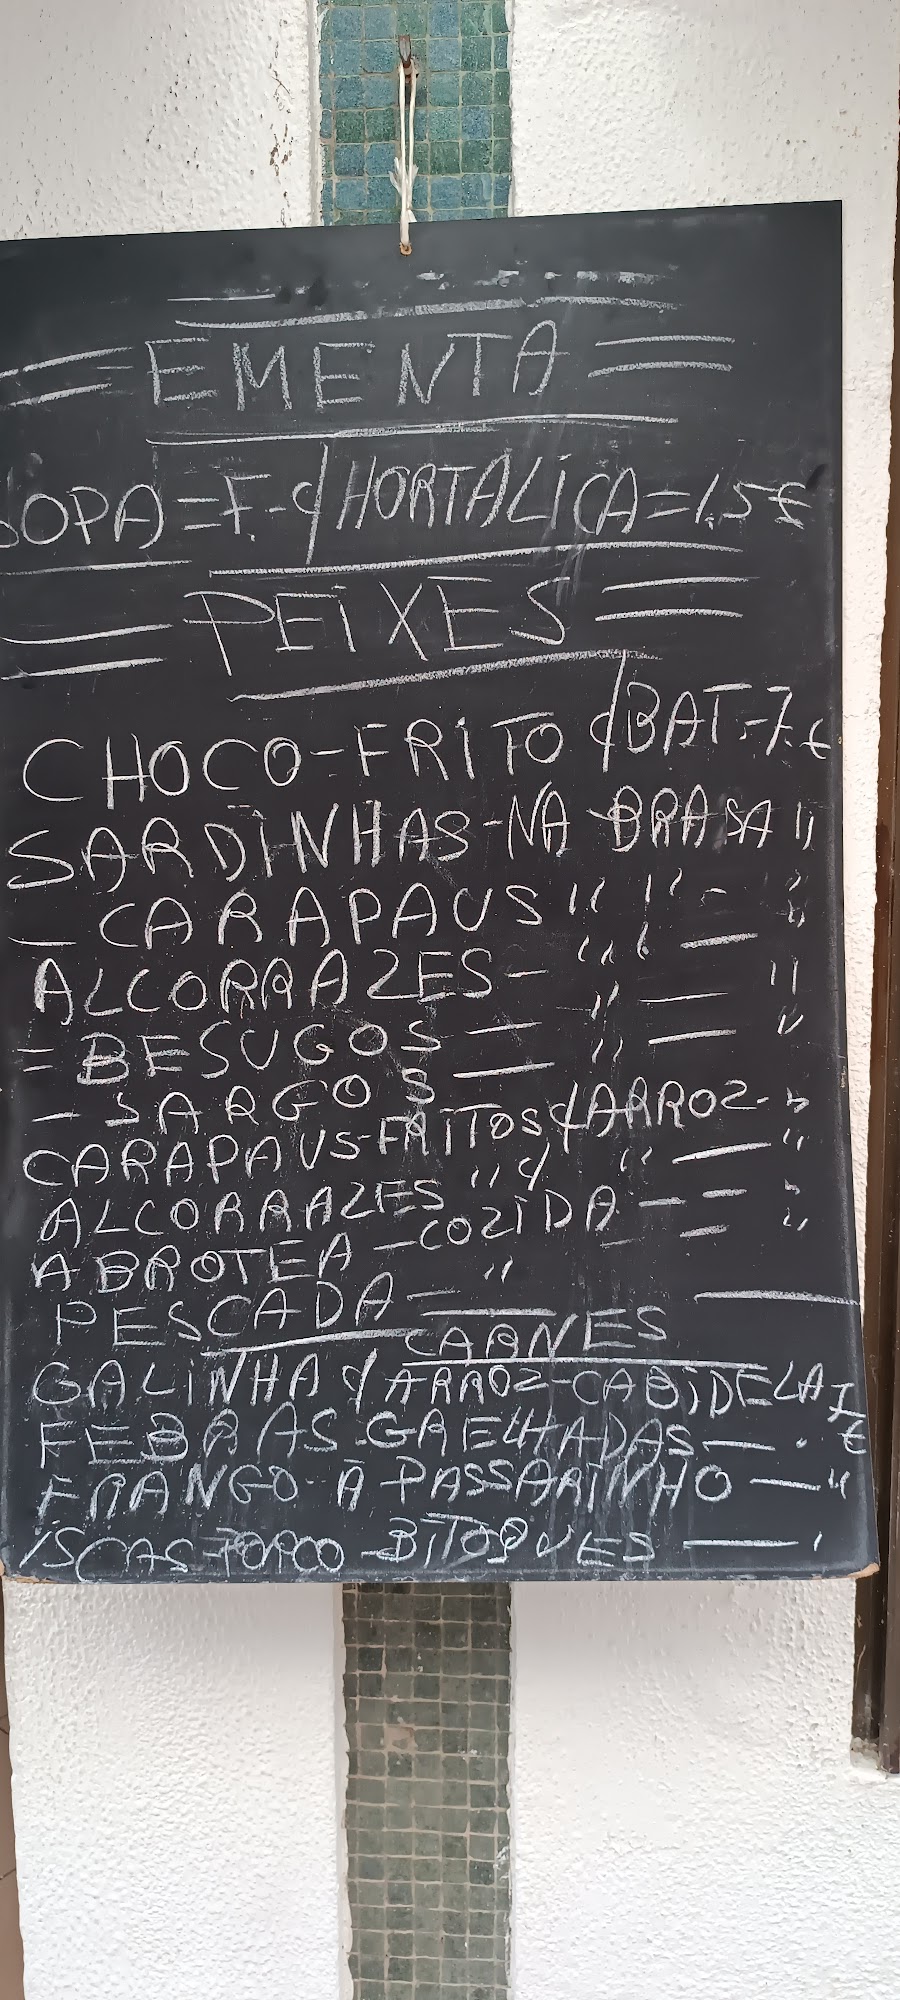 EMENTA
SOPA = F. c/ HORTALICA = 1.5€
PEIXES
CHOCO-FRITO c/ BAT.-7.€
SARDINHAS-NA BRASA "
- CARAPAUS " " - "
ALCORRAZES - " " - "
= BESUGOS - " - "
- SARGOS - " - "
CARAPAUS-FRITOS c/ ARROZ - "
ALCORRAZES " c/ " - "
ABROTEA - COZIDA - - "
PESCADA - " - "
CARNES
GALINHA c/ ARROZ-CABIDELA 7€
FEBRAS-GRELHADAS - "
FRANGO-À PASSARINHO - "
ISCAS-PORCO-BITOQUES - "